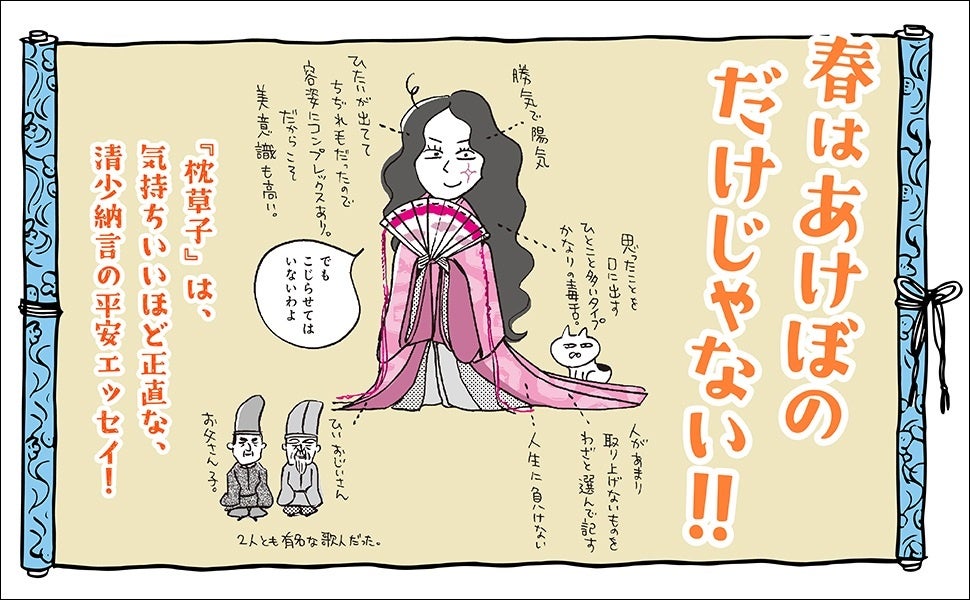 春はあけぼの
だけじゃない!!
勝気で陽気
ひたいが出てて
ちぢれ毛だったので
容姿にコンプレックスあり。
だからこそ
美意識も高い。
思ったことを
口に出す
ひとこと多いタイプ
かなりの毒舌。
でも
こじらせては
いないわよ
人があまり
取り上げないものを
わざと選んで記す
人生に負けない
ひいおじいさん
お父さん子。
2人とも有名な歌人だった。
『枕草子』は、
気持ちいいほど正直な、
清少納言の平安エッセイ!